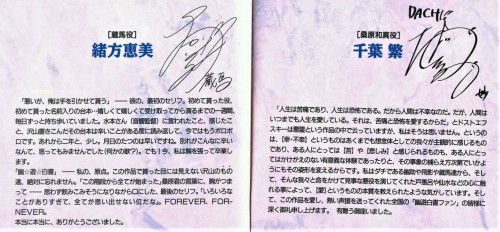 [蔵馬役]
緒方恵美
蔵馬
「悪いが、俺は手を引かせて貰う」── 彼の、最初のセリフ。初めて貰った役、
初めて貰った名前入りの台本…嬉しくて嬉しくて受け取ってから演るまでの一週間、
毎日ずっと持ち歩いていました。水本さん（音響監督）に言われたこと、感じたこ
と、沢山書きこんだその台本は辛いことがある度に読み返して、今ではもうボロボ
ロです。あれから二年と、少し。月日のたつのは早いですね。別れがこんなに辛い
なんて、思ってもみませんでした（何かの歌？）。でも！今、私は胸を張って卒業し
ます。
「幽☆遊☆白書」── 私の、原点。この作品で貰った目には見えない沢山のもの
達、絶対に忘れません。「この階段から全てが始まった」桑原君の言葉に、胸がつま
って── 思わず飲みこみそうになりながら口にした、最後のセリフ。「いろいろな
ことがありすぎて、全てか思い出せない位だな」。FOREVER. FOR-
NEVER。
本当に本当に、ありがとうございました。
[桑原和真役]
千葉 繁
DACHI
「人生は苦痛であり、人生は恐怖である。だから人間は不幸なのだ。だが、人間は
いつまでも人生を愛している。それは、苦痛と恐怖を愛するからだ」とドストエフ
スキーは悪霊という作品の中で云っていますが、私はそうは思いません。というの
は、【幸・不幸】というものはあくまでも感念体としての我々が主観的に感じるもの
であり、ある人にとっては【苦】や【悲しみ】と感じられるものも、ある人にとっ
てはかけがえのない有意義な体験であったりと、その事象の捕らえ方次第でいかよ
うにもその姿形を変えるからです。私はダチである幽助や飛影や蔵馬達から、そし
て、そんな我々と命をかけて見事な悪役を演じてくれた戸愚呂や仙水などの心に触
れる事によって、【愛】というものの本質を教えられたような気がしています。そし
て、この作品を愛し、熱い声援を送ってくれた全国の「幽遊白書ファン」の皆様に
深く御礼申し上げます。 有難う御座いました。